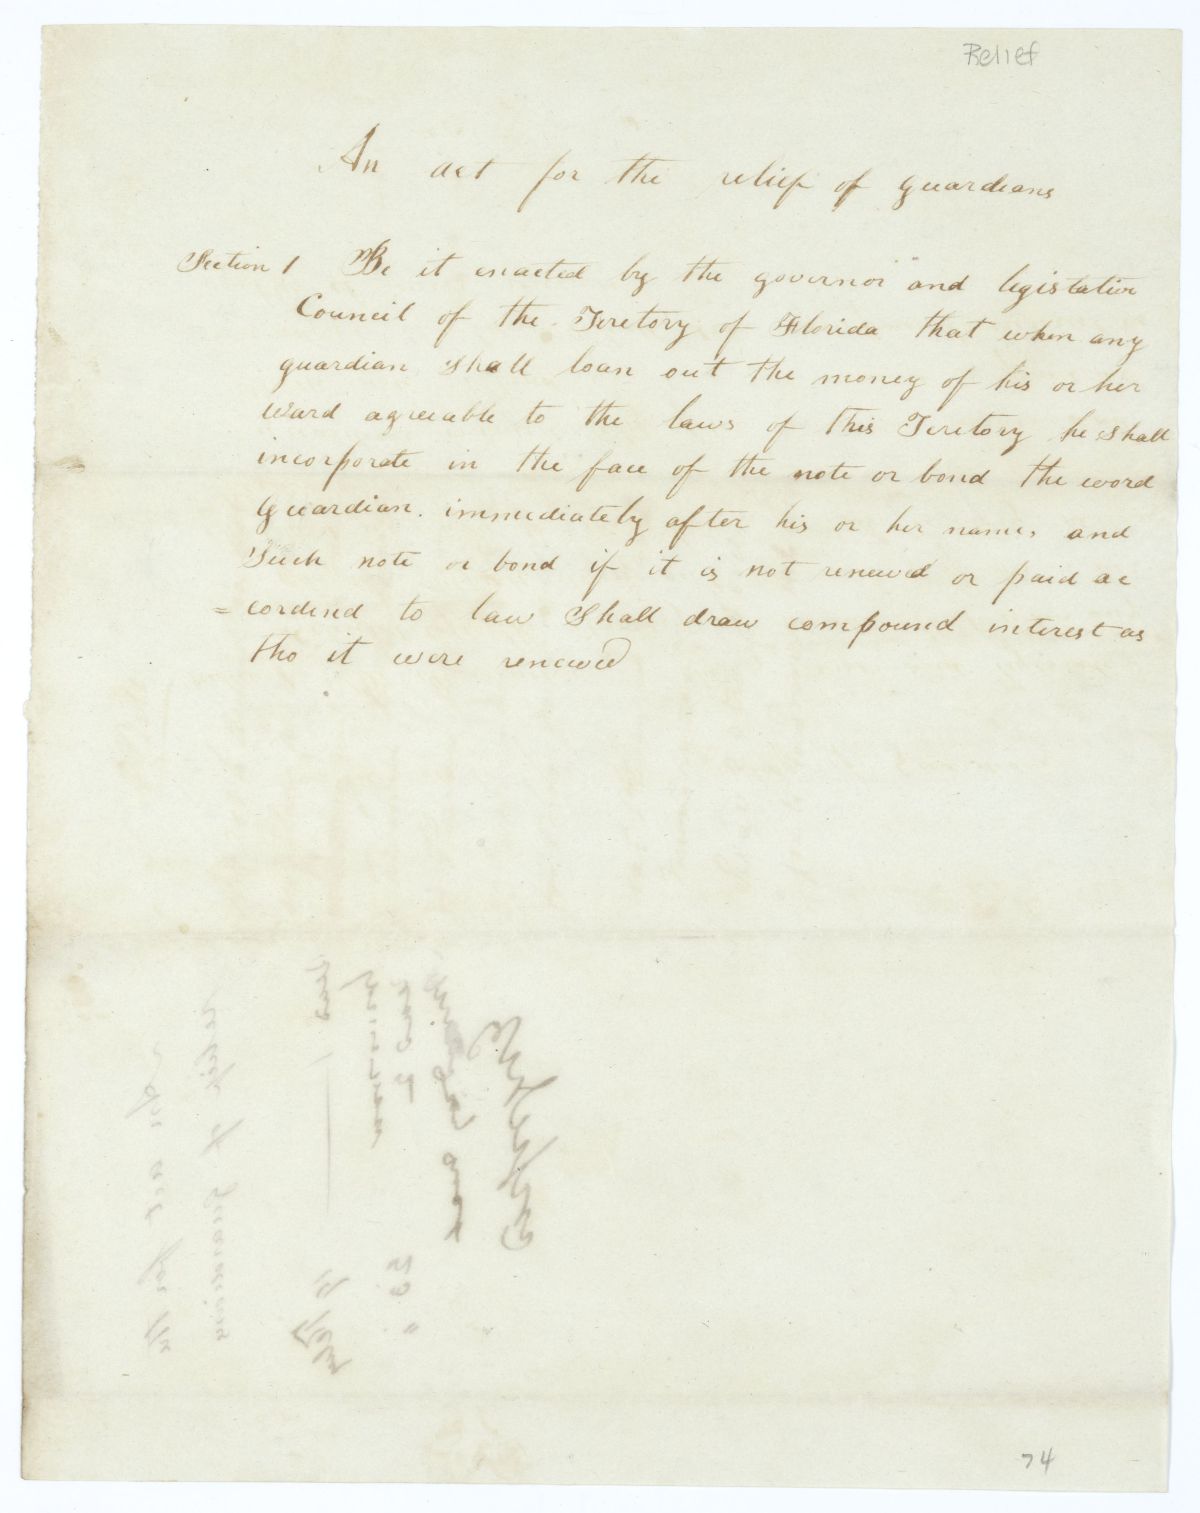 Relief
An act for the relief of guardians
Section 1 Be it enacted by the governor and legislative
Council of the Teretory of Florida that when any
guardian shall loan out the money of his or her
Ward agreeable to the laws of this Teretory he shall
incorporate in the face of the note or bond the word
Guardian. immediately after his or her name, and
Such note or bond if it is not renewed or paid ac
= cordind to law Shall draw compound interest as
tho it were renewed
74